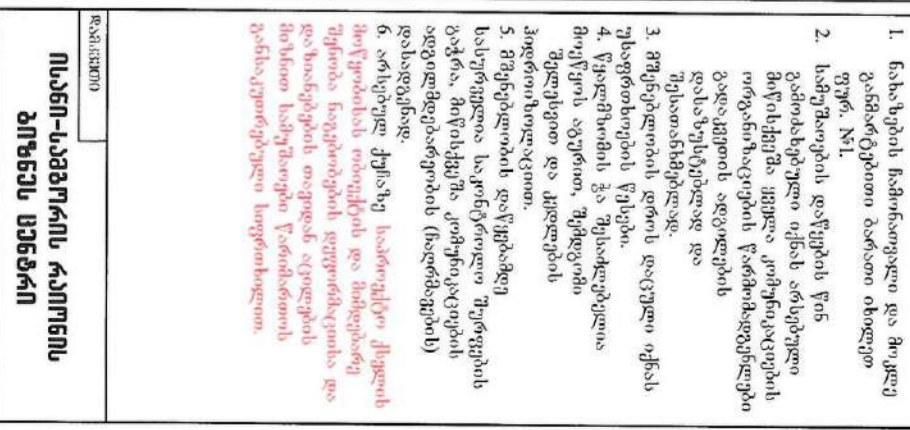 1. ნახაზების ჩამონათვალი და მოკლე
განმარტებითი ბარათი იხილეთ
ფურ. №1.
2. სამუშაოების დაწყების წინ
გამოძახებული იქნას არსებული
მიწისქვეშა ყველა კომუნიკაციების
ორგანიზაციების წარმომადგენლები
გადაკვეთის ადგილების
დასაზუსტებლად და
შესათანხმებლად.
3. მშენებლობის დროს დაცული იქნას
უსაფრთხოების წესები.
4. წყალმზომის ჭა შესაძლებელია
მოეწყოს აგურით, შემდგომი
შელესვით და კედლების
ჰიდროიზოლაციით.
5. მშენებლობის დაწყებამდე
სასურველია საკონტროლო შურფების
გაჭრა, მიწისქვეშა კომუნიკაციების
ადგილმდებარეობის (ჩაღრმავების)
დასადგენად.
6. არსებულ ქუჩაზე საპროექტო ქსელის
მოწყობისას ობიექტის და მიმდებარე
შენობა ნაგებობების დეფორმაციისა და
დაზიანებების თავიდან აცილების
მიზნით სამუშაოები წარიმართოს
განსაკუთრებული სიფრთხილით.
დამკვეთი
ისანი-სამგორის რაიონის
ბიზნეს ცენტრი